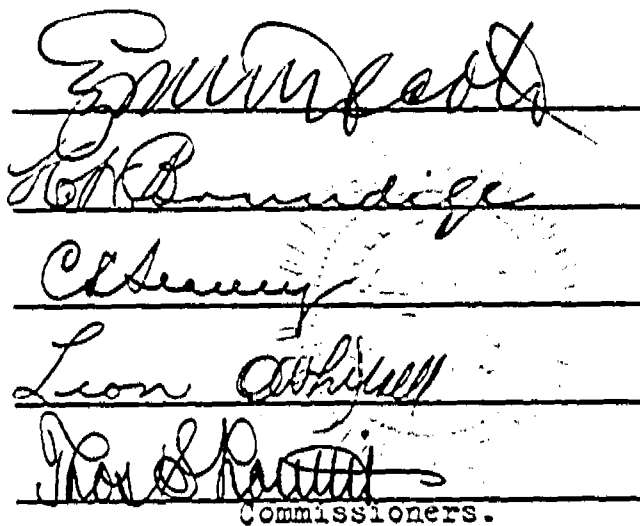 Ezra W Decoto
H W Brundige
C L Seavey
Leon O Whitsell
Thos S Louttit
Commissioners.